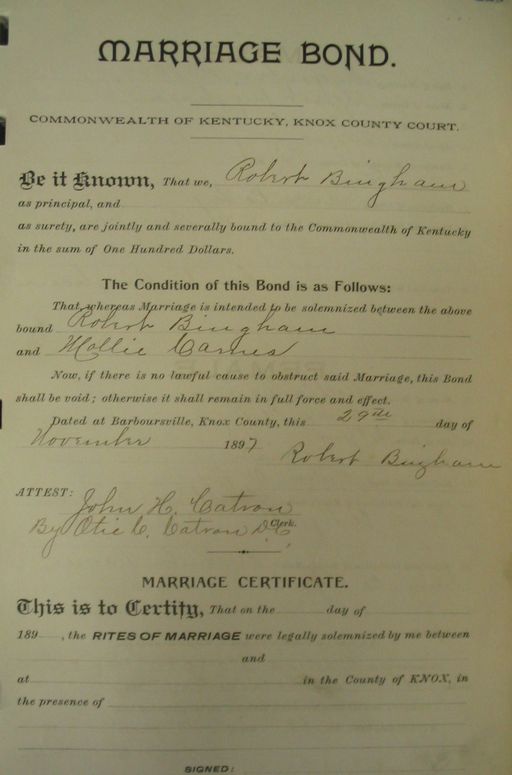 MARRIAGE BOND.
COMMONWEALTH OF KENTUCKY, KNOX COUNTY COURT.
Be it Known, That we, Robert Bingham
as principal, and
as surety, are jointly and severally bound to the Commonwealth of Kentucky
in the sum of One Hundred Dollars.
The Condition of this Bond is as Follows:
That whereas Marriage is intended to be solemnized between the above
bound Robert Bingham
and Mollie Carnes
Now, if there is no lawful cause to obstruct said Marriage, this Bond
shall be void; otherwise it shall remain in full force and effect.
Dated at Barboursville, Knox County, this 29th day of
November 1897
Robert Bingham
ATTEST: John H. Catron
Clerk.
By Otis C. Catron D.C.
MARRIAGE CERTIFICATE.
This is to Certify, That on the day of
189 , the RITES OF MARRIAGE were legally solemnized by me between
and
at in the County of KNOX, in
the presence of
SIGNED: